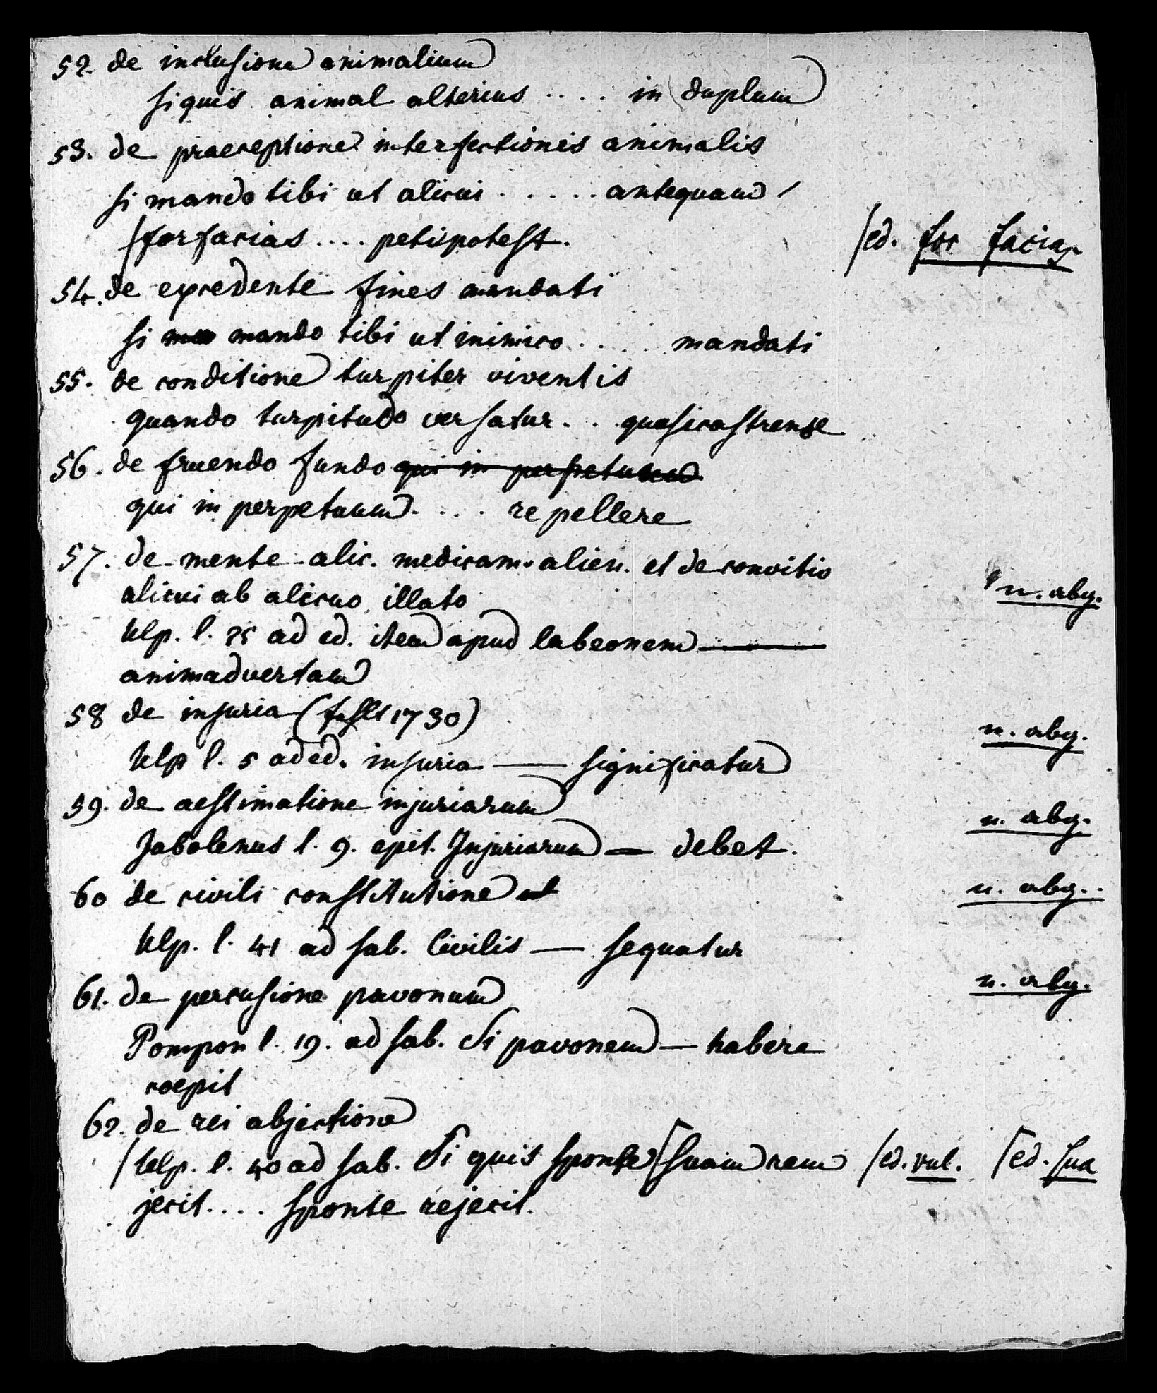 52. de inclusione animalium
siquis animal alterius .... in duplum
53. de praeceptione interfectionis animalis
si mando tibi ut alicui ...... antequam /
/forfacias .... peti potest. /ed. for facias
54. de excedente fines mandati
si mando tibi ut inimico ..... mandati
55. de conditione turpiter viventis
quando turpitudo versatur ... quasicastrense
56. de fruendo fundo qui in perpetuum
qui in perpetuum .... repellere
57. de mente alic. medicam. alien. et de convitio
alicui ab alicuo illato n. abg.
Ulp. l. 25 ad ed. item apud labeonem ——
animadvertam
58 de injuria (fuſſt 1730) n. abg.
Ulp l. 5 ad ed. injuria — significatur
59. de aestimatione injuriarum n. abg.
Jabolenus l. 9. epit. Injuriarum — debet.
60 de civili constitutione n. abg.
Ulp. l. 41 ad sab. Civilis — sequatur
61. de percusione pavonum n. abg.
Pompon l. 19. ad sab. Si pavonem — habere
coepit
62. de rei abjectione
/Ulp. l. 40 ad sab. Si quis sponte ⌈suam rem /ed. vul. ⌈ed. sua
jecit .... sponte rejecit.